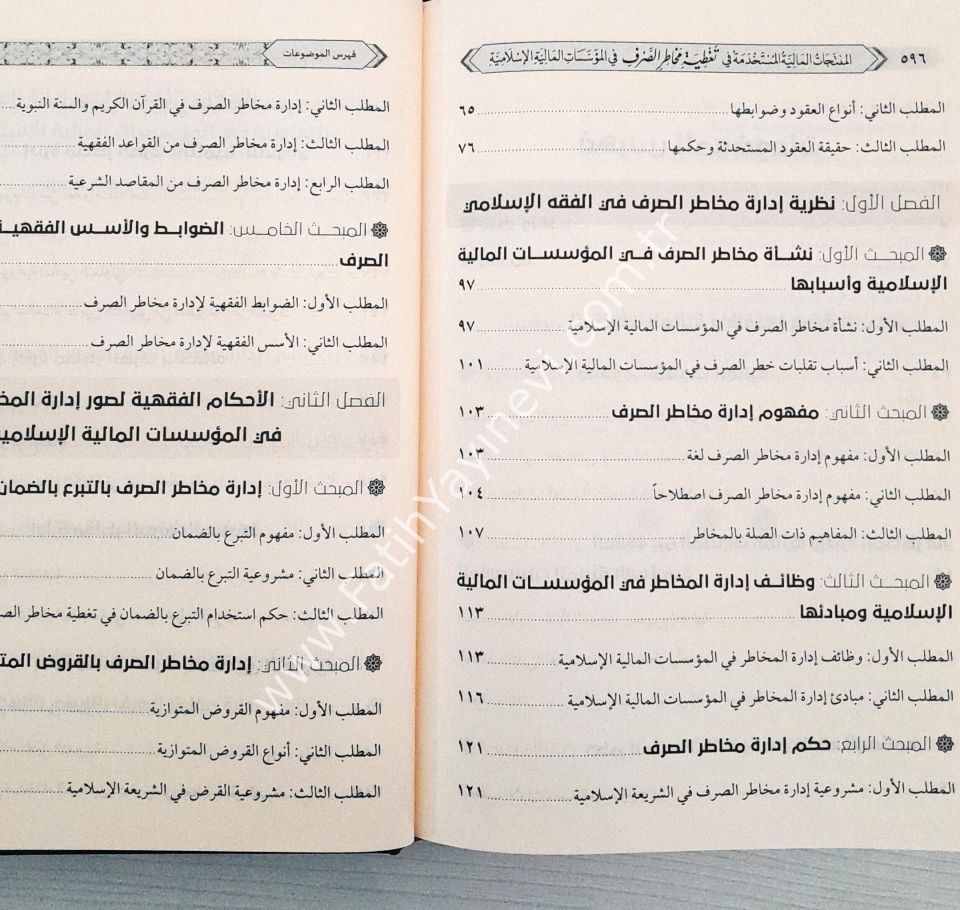 ٥٩٦
المنتجات المالية المستخدمة في تغطية مخاطر الصرف في المؤسسات المالية الإسلامية
المطلب الثاني: أنواع العقود وضوابطها ٦٥
المطلب الثالث: حقيقة العقود المستحدثة وحكمها ٧٦
الفصل الأول: نظرية إدارة مخاطر الصرف في الفقه الإسلامي
المبحث الأول: نشأة مخاطر الصرف في المؤسسات المالية
الإسلامية وأسبابها ٩٧
المطلب الأول: نشأة مخاطر الصرف في المؤسسات المالية الإسلامية ٩٧
المطلب الثاني: أسباب تقلبات خطر الصرف في المؤسسات المالية الإسلامية ١٠١
المبحث الثاني: مفهوم إدارة مخاطر الصرف ١٠٣
المطلب الأول: مفهوم إدارة مخاطر الصرف لغة ١٠٣
المطلب الثاني: مفهوم إدارة مخاطر الصرف اصطلاحاً ١٠٤
المطلب الثالث: المفاهيم ذات الصلة بالمخاطر ١٠٧
المبحث الثالث: وظائف إدارة المخاطر في المؤسسات المالية
الإسلامية ومبادئها ١١٣
المطلب الأول: وظائف إدارة المخاطر في المؤسسات المالية الإسلامية ١١٣
المطلب الثاني: مبادئ إدارة المخاطر في المؤسسات المالية الإسلامية ١١٦
المبحث الرابع: حكم إدارة مخاطر الصرف ١٢١
المطلب الأول: مشروعية إدارة مخاطر الصرف في الشريعة الإسلامية ١٢١
فهرس الموضوعات
المطلب الثاني: إدارة مخاطر الصرف في القرآن الكريم والسنة النبوية
المطلب الثالث: إدارة مخاطر الصرف من القواعد الفقهية
المطلب الرابع: إدارة مخاطر الصرف من المقاصد الشرعية
المبحث الخامس: الضوابط والأسس الفقهية
الصرف
المطلب الأول: الضوابط الفقهية لإدارة مخاطر الصرف
المطلب الثاني: الأسس الفقهية لإدارة مخاطر الصرف
الفصل الثاني: الأحكام الفقهية لصور إدارة المخ
في المؤسسات المالية الإسلامي
المبحث الأول: إدارة مخاطر الصرف بالتبرع بالضمان
المطلب الأول: مفهوم التبرع بالضمان
المطلب الثاني: مشروعية التبرع بالضمان
المطلب الثالث: حكم استخدام التبرع بالضمان في تغطية مخاطر الص
المبحث الثاني: إدارة مخاطر الصرف بالقروض المت
المطلب الأول: مفهوم القروض المتوازية
المطلب الثاني: أنواع القروض المتوازية
المطلب الثالث: مشروعية القرض في الشريعة الإسلامية
www.FatihYayinevi.com.tr